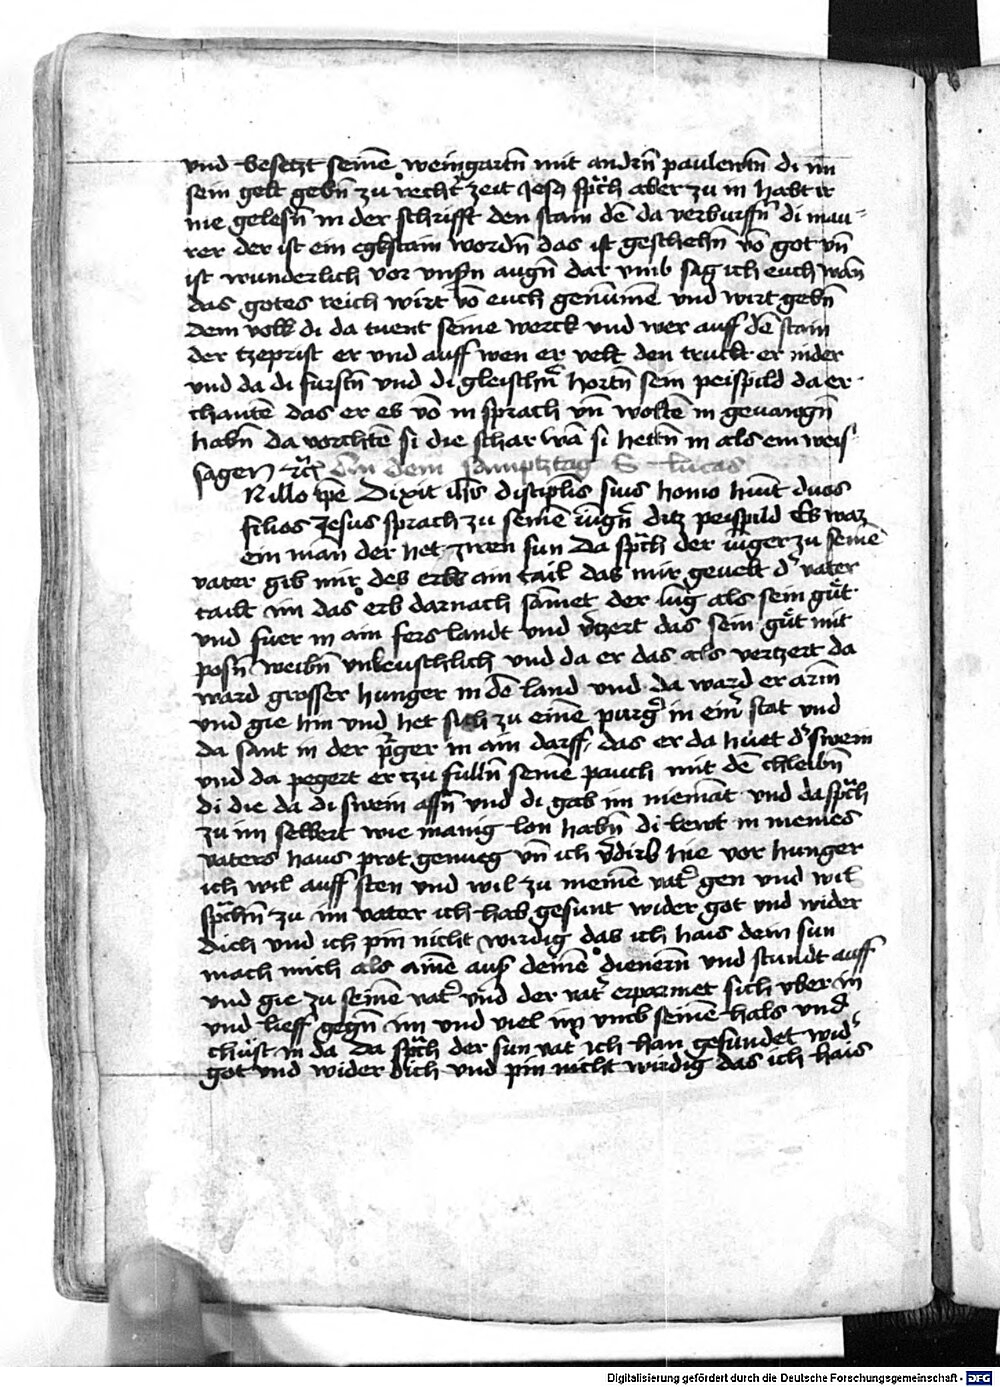 vnd besetzt seinē weingartn̄ mit andrn̄ paulewtn̄ di im
sein gelt gebn̄ zu recht̄ zeit Jesꝰ sprͣch aber zu in habt ir
nie gelesn̄ in der schrifft den stain dē da verburffn̄ di mau=
rer der ist ein eghstain wordn̄ das ist geschehn̄ vō got vn̄
ist wunderlich vor vnsn̄ augn̄ dar vmb sag ich euch wan̄
das gotes reich wirt vō euch genūmē vnd wirt gebn̄
dem volk di da tuent seine werck vnd wer auff dē stain
der tzeprist er vnd auff wen er velt den truckt er nider
vnd da di furstn̄ vnd di gleischn̄ hortn̄ sein peispild da er
chantē das er es vō in sprach vn̄ woltē in gevangn̄
habn̄ da vorchtē si die schar wā si hettn̄ in als ein weis
sagen Am dem samptztag S lucas
N illo tpē Dixit ihs discipl̄is suis homo huīt duos
filios Jesus sprach zu seinē iūgn̄ ditz peispild Es waz
ein man der het zwen sun Da sprͣch der iūger zu seinē
vater gib mir des erbs ain tail das mir gevelt dˀ vater
tailt im das erb darnach sāmet der iūg als sein gůt
vnd fuer in ain fers landt vnd v̄tzert das sein gůt mit
posn̄ weibn̄ vnkeuschlich vnd da er das als vertzert da
ward grosser hunger in dē land vnd da ward er arm
vnd gie hin vnd het sich zu einē purgˀ in einˀ stat vnd
da sant in der p̄ger in ain darff das er da hüet dˀ swein
vnd da pegert er tzu fulln̄ seinē pauch mit dē chleibn̄
di die da di swein assn̄ vnd di gab im niemāt vnd da sprͣch
zu im selbert wie manig lon habn̄ di lewt in meines
vaters haus prot genueg vn̄ ich v̄dirb hie vor hunger
ich wil auff sten vnd wil zu meinē vatˀ gen vnd wil
sprͣchn̄ zu im vater ich hab gesunt wider got vnd wider
dich vnd ich pin nicht wirdig das ich hais dein sun
mach mich als ainē aus deinē dienern̄ vnd stundt auff
vnd gie zu seinē vatˀ vnd der vatˀ erparmet sich vber in
vnd lieff gegn̄ im vnd viel im vmb seinē hals vnd
chüst in da Da sprͣch der sun vatˀ ich han gesundet widˀ
got vnd wider dich vnd pin nicht wirdig das ich hais
Digitalisierung gefördert durch die Deutsche Forschungsgemeinschaft - DFG